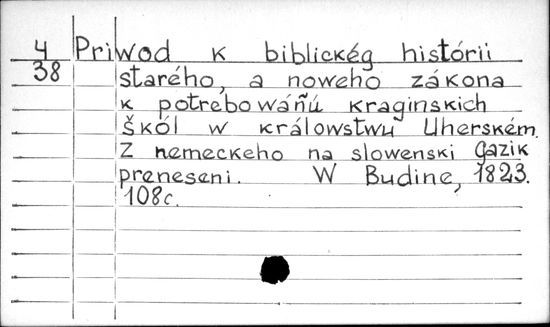 4 Priwod k biblickég histórii
38 starého, a noweho zákona
k potrebowáñú kraginskich
škól w králowstwu Uherském.
Z nemeckeho na slowenski gazik
preneseni. W Budine, 1823.
108c.